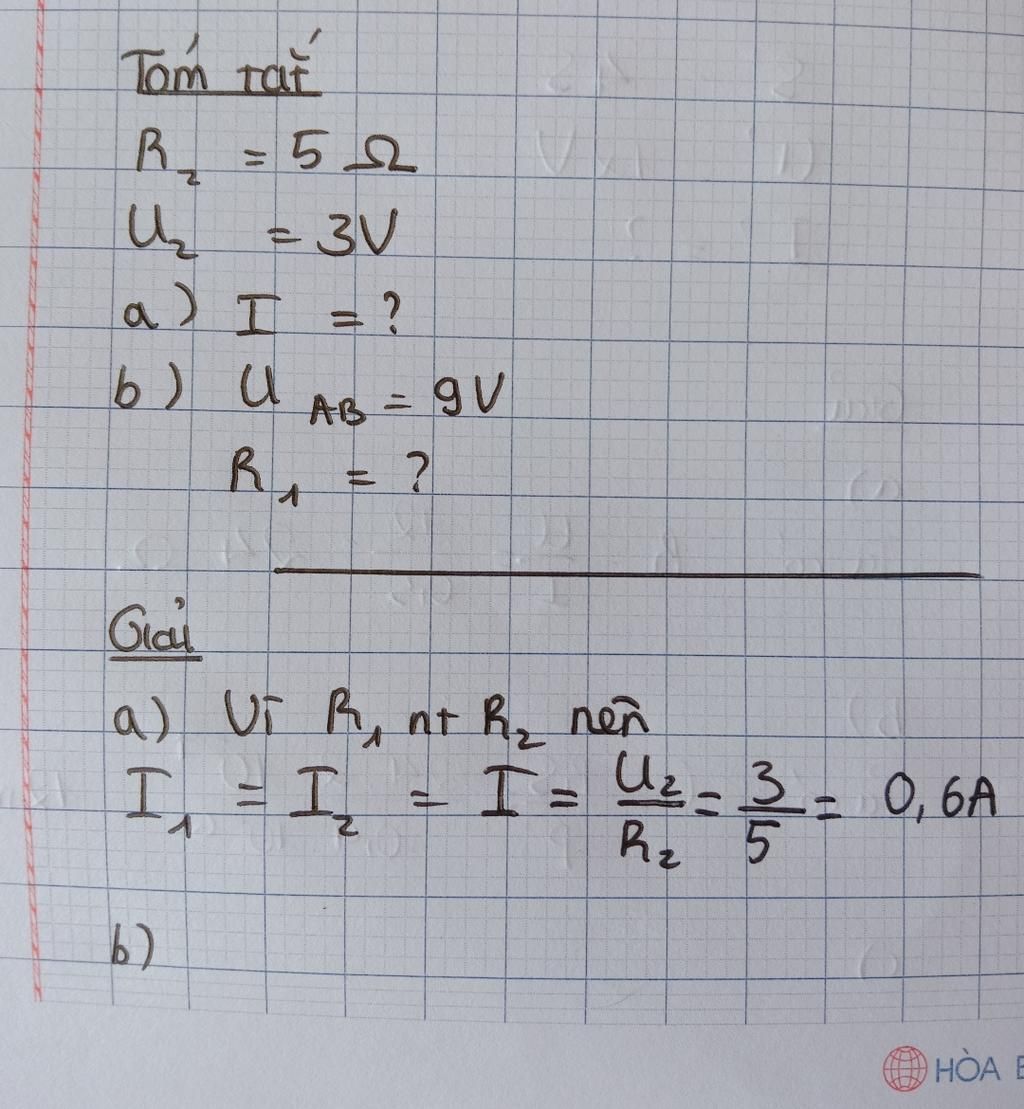 Tóm tắt
R₂ = 5 Ω
U₂ = 3V
a) I = ?
b) U AB = 9V
R₁ = ?
Giải
a) Vì R₁ nt R₂ nên
I₁ = I₂ = I = U₂/R₂ = 3/5 = 0,6A
b)
HÒA